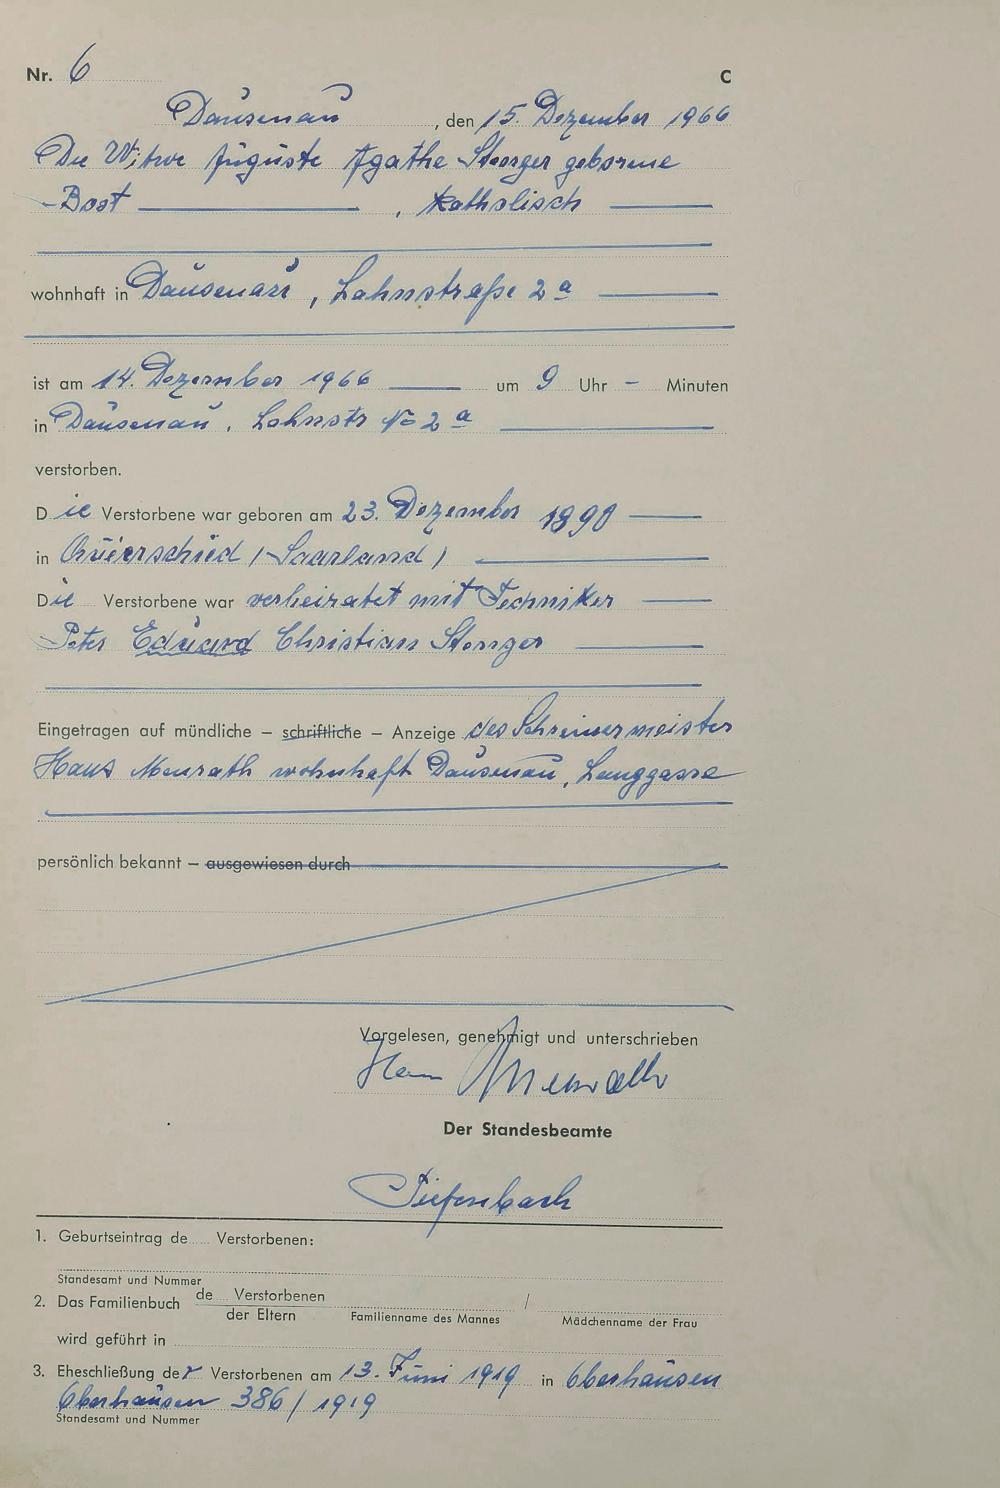 Nr. 6 C
Dausenau, den 15. Dezember 1966
Die Witwe Auguste Agathe Stenger geborene
Bost, katholisch
wohnhaft in Dausenau, Lahnstraße 2 a
ist am 14. Dezember 1966 um 9 Uhr – Minuten
in Dausenau, Lahnstr No 2 a
verstorben.
Die Verstorbene war geboren am 23. Dezember 1890
in Quierschied (Saarland)
Die Verstorbene war verheiratet mit Techniker
Peter Eduard Christian Stenger
Eingetragen auf mündliche – schriftliche – Anzeige des Schreinermeister
Hans Menrath wohnhaft Dausenau, Langgasse
persönlich bekannt – ausgewiesen durch
Vorgelesen, genehmigt und unterschrieben
Hans Menrath
Der Standesbeamte
Tiefenbach
1. Geburtseintrag de Verstorbenen:
Standesamt und Nummer
2. Das Familienbuch de Verstorbenen /
der Eltern Familienname des Mannes Mädchenname der Frau
wird geführt in
3. Eheschließung der Verstorbenen am 13. Juni 1919 in Oberhausen
Oberhausen 386/1919
Standesamt und Nummer